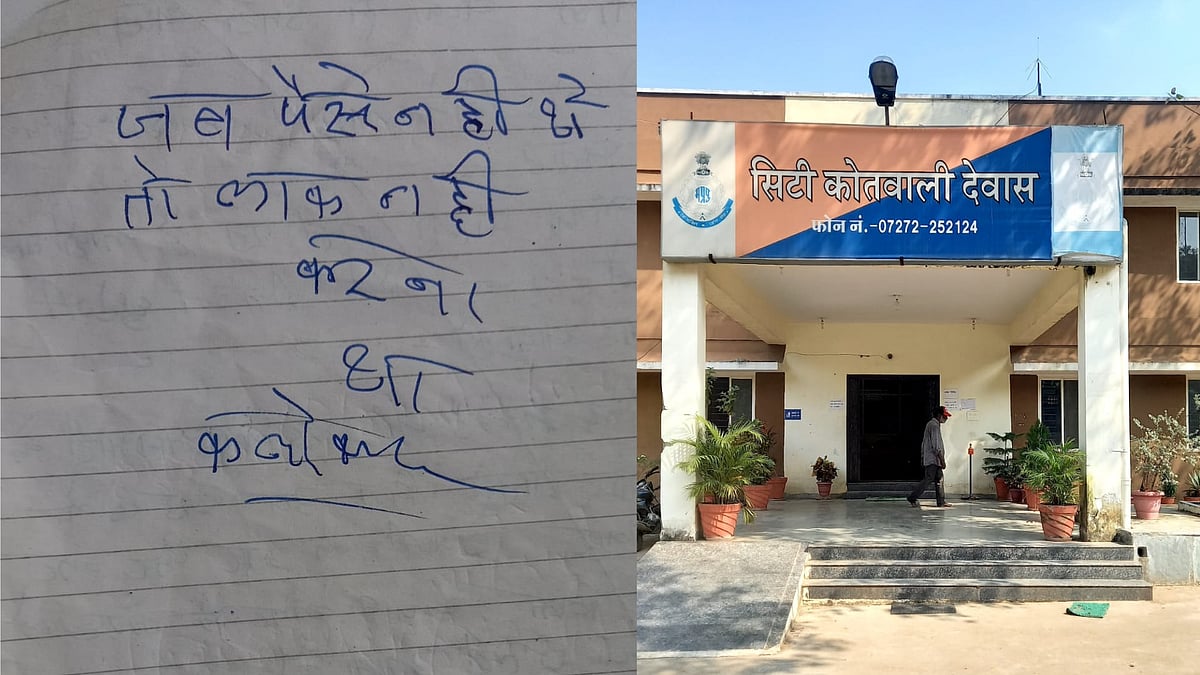 जब पैसे नही थे
तो लाक नही
करना
था
कलेक्टर
सिटी कोतवाली देवास
फोन नं.-07272-252124